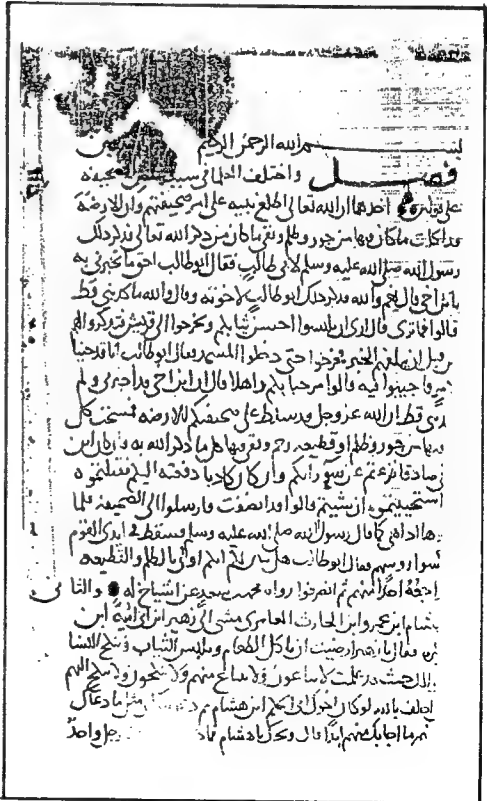 بسم الله الرحمن الرحيم
فصل واختلف العلما في سبب نقض الصحيفة
على قولين احدهما ان الله تعالى اطلع نبيه على امر صحيفتهم وان الارضة
قد اكلت ما كان فيها من جور وظلم وبقي ما كان من ذكر الله تعالى فذكر ذلك
رسول الله صلى الله عليه وسلم لابي طالب فقال ابو طالب احق ما تخبرني به
يا بن اخي قال نعم والله فذكر ذلك ابو طالب لاخوته وقال والله ما كذبني قط
قالوا فما ترى قال ارى ان تلبسوا احسن ثيابكم وتخرجوا الى قريش فتذكروا لهم
من قبل ان يبلغهم الخبر فخرجوا حتى دخلوا المسجد فقال ابو طالب انا قد جينا
فاجيبوا فيه قالوا مرحبا بكم واهلا قال ان ابن اخي قد اخبرني ولم
قط ان الله عز وجل قد سلط على صحيفتكم الارضة فمسحت كل
من جور وظلم او قطيعة رحم وبقي فيها كل ما ذكر الله به فان كان ابن
صادقا نزعتم عن سو رأيكم وان كان كاذبا دفعته اليكم فقتلتموه
استحييتموه ان شيتم قالوا قد انصفت فارسلوا الى الصحيفة فلما
اذا هي كما قال رسول الله صلى الله عليه وسلم وسقط في ايدي القوم
روسهم فقال ابو طالب هل لكم انكم اولى بالظلم والقطيعة
احد منهم ثم انصرفوا رواه محمد بن سعد عن اشياخ له والثاني
هشام ابن عمرو ابن الحارث العامري مشى الى زهير ابن ابي امية ابن
فقال يا زهير ارضيت ان تاكل الطعام وتلبس الثياب وتنكح النسا
حيث قد علمت لا يباعون ولا يبتاع منهم ولا ينكحون ولا ينكح اليهم
احلف بالله لو كان اخوال ابي الحكم ابن هشام ثم دعوته الى مثل ما دعاك
ما اجابك منهم ابدا قال ويحك يا هشام رجل واحد